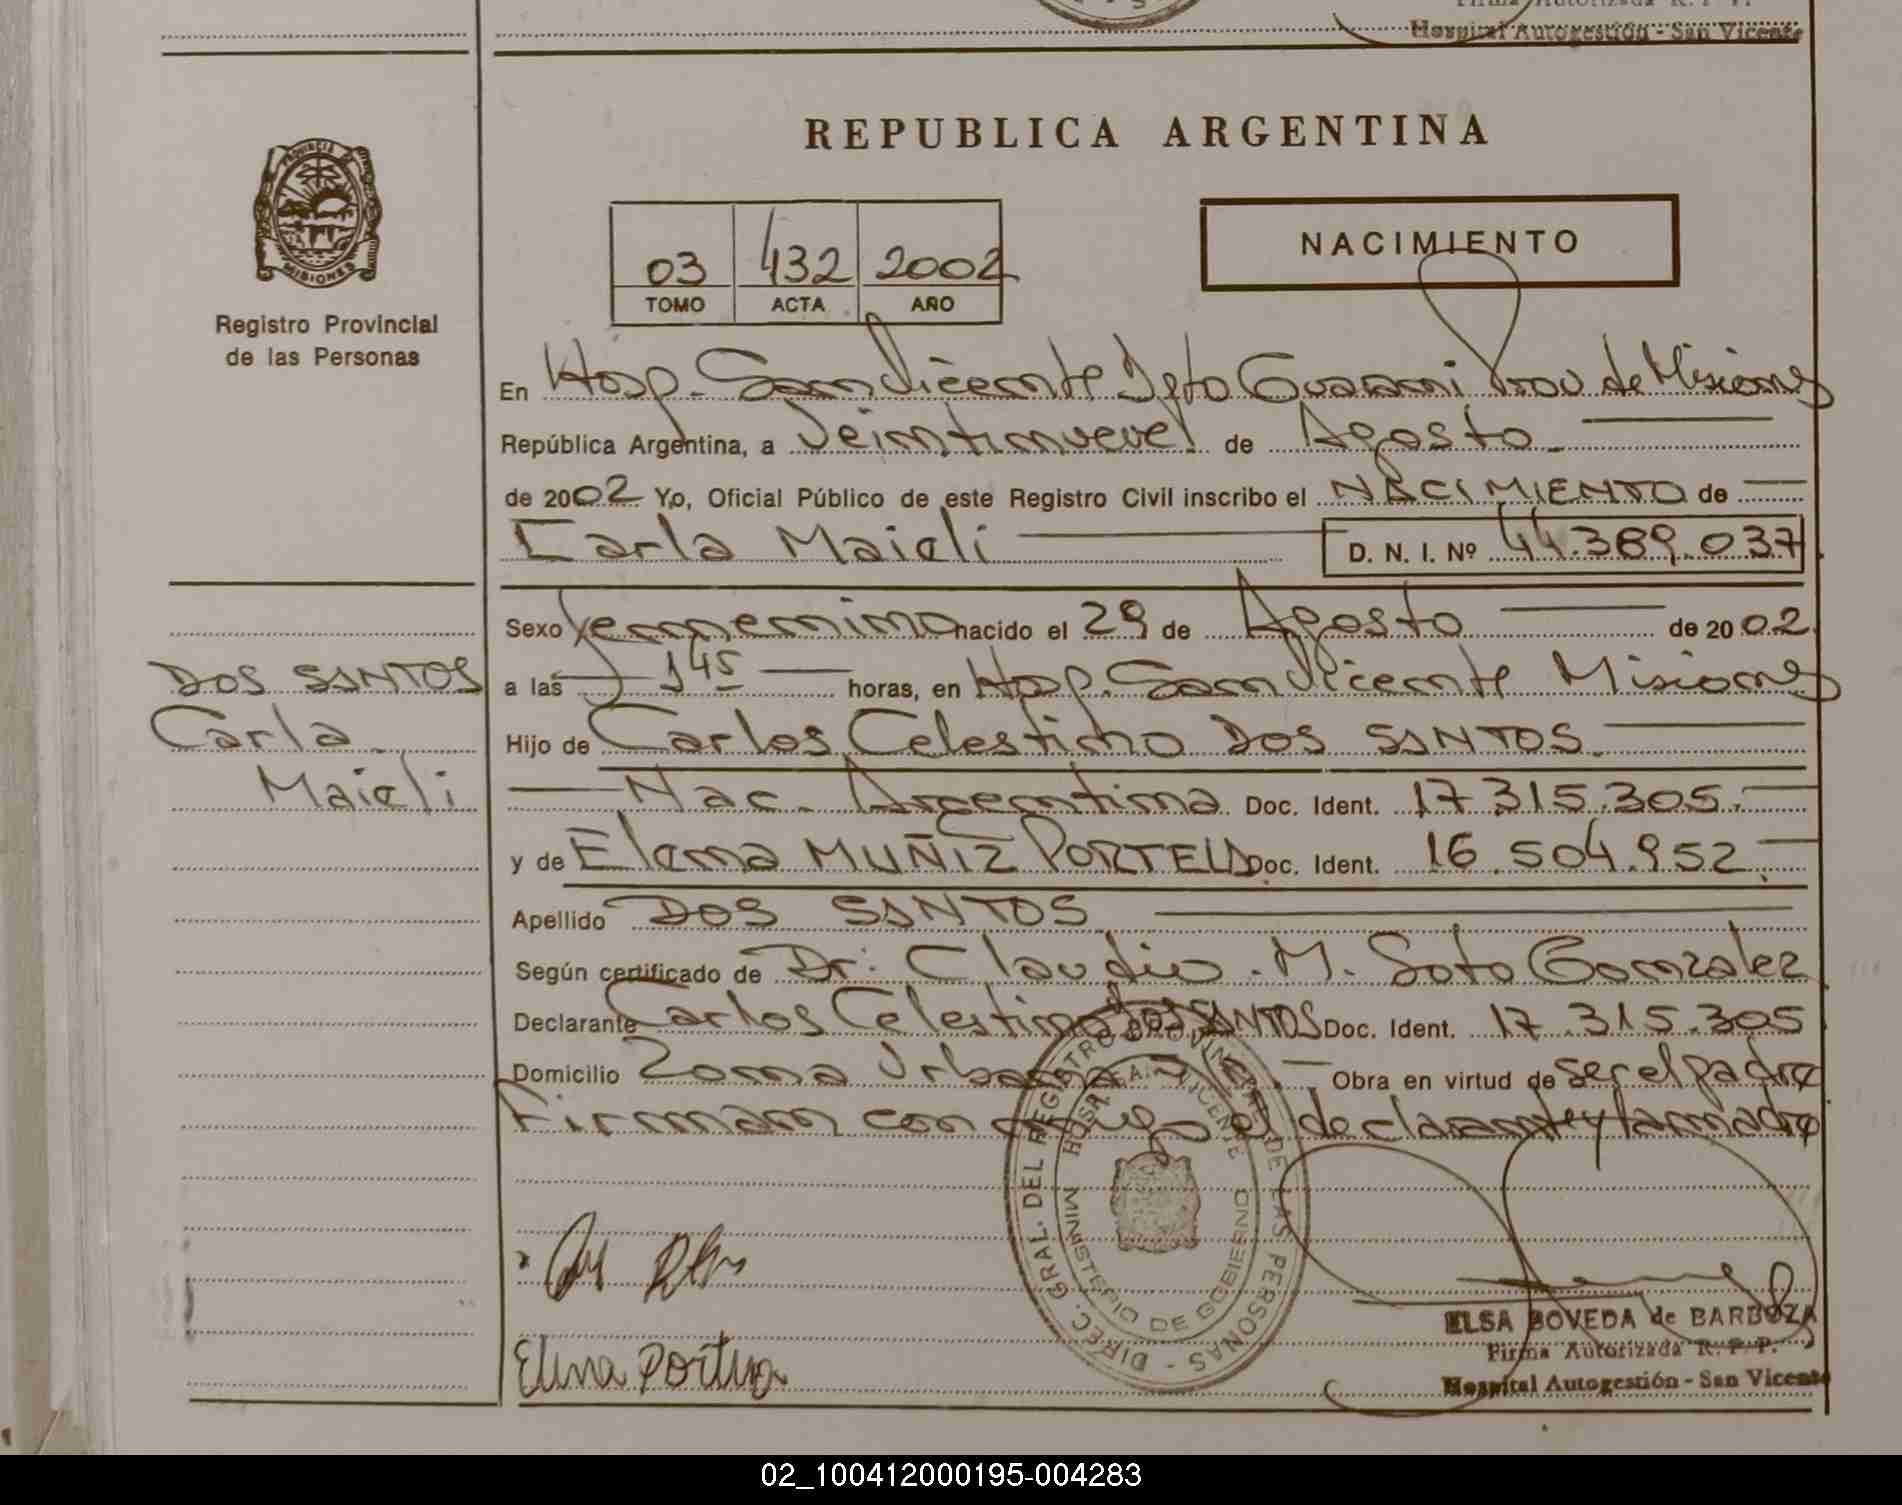 Hospital Autogestión - San Vicente
REPUBLICA ARGENTINA
PROVINCIA DE
MISIONES
Registro Provincial
de las Personas
03 432 2002
TOMO ACTA AÑO
NACIMIENTO
En Hosp. San Vicente Dpto Guarani Prov de Misiones
República Argentina, a Veintinueve de Agosto
de 2002 Yo, Oficial Público de este Registro Civil inscribo el NACIMIENTO de
Carla Maieli D. N. I. Nº 44.389.037
Sexo femenino nacido el 29 de Agosto de 2002
a las 1 45 horas, en Hosp. San Vicente Misiones
Hijo de Carlos Celestino DOS SANTOS
Nac. Argentina Doc. Ident. 17.315.305.
y de Elena MUÑIZ PORTELA Doc. Ident. 16.504.952
Apellido DOS SANTOS
Según certificado de Dr. Claudio. M. Soto Gonzalez
Declarante Carlos Celestino DOS SANTOS Doc. Ident. 17.315.305
Domicilio Zona Urbana Obra en virtud de ser el padre
Firman conmigo el declarante y la madre
DOS SANTOS
Carla
Maieli
DIREC. GRAL. DEL REGISTRO PROVINCIAL DE LAS PERSONAS
HOSP. SAN VICENTE
MINISTERIO DE GOBIERNO
Elena Portela
ELSA BOVEDA de BARBOZA
Firma Autorizada R. P. P.
Hospital Autogestión - San Vicente
02_100412000195-004283